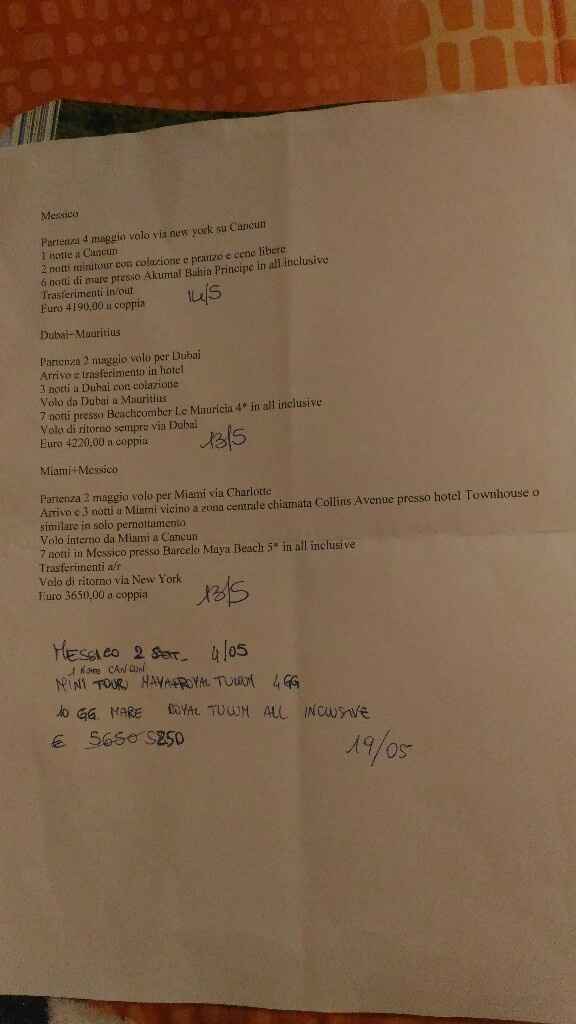 Messico
Partenza 4 maggio volo via new york su Cancun
1 notte a Cancun
2 notti minitour con colazione e pranzo e cene libere
6 notti di mare presso Akumal Bahia Principe in all inclusive
Trasferimenti in/out
Euro 4190,00 a coppia 14/5
Dubai+Mauritius
Partenza 2 maggio volo per Dubai
Arrivo e trasferimento in hotel
3 notti a Dubai con colazione
Volo da Dubai a Mauritius
7 notti presso Beachcomber Le Mauricia 4* in all inclusive
Volo di ritorno sempre via Dubai
Euro 4220,00 a coppia 13/5
Miami+Messico
Partenza 2 maggio volo per Miami via Charlotte
Arrivo e 3 notti a Miami vicino a zona centrale chiamata Collins Avenue presso hotel Townhouse o
similare in solo pernottamento
Volo interno da Miami a Cancun
7 notti in Messico presso Barcelo Maya Beach 5* in all inclusive
Trasferimenti a/r
Volo di ritorno via New York
Euro 3650,00 a coppia 13/5
MESSICO 2 SET. 4/05
1 NOTTE CANCUN
MINI TOUR MAYA ROYAL TULUM 4GG
10 GG. MARE ROYAL TULUM ALL INCLUSIVE
€ 5650 5250
19/05